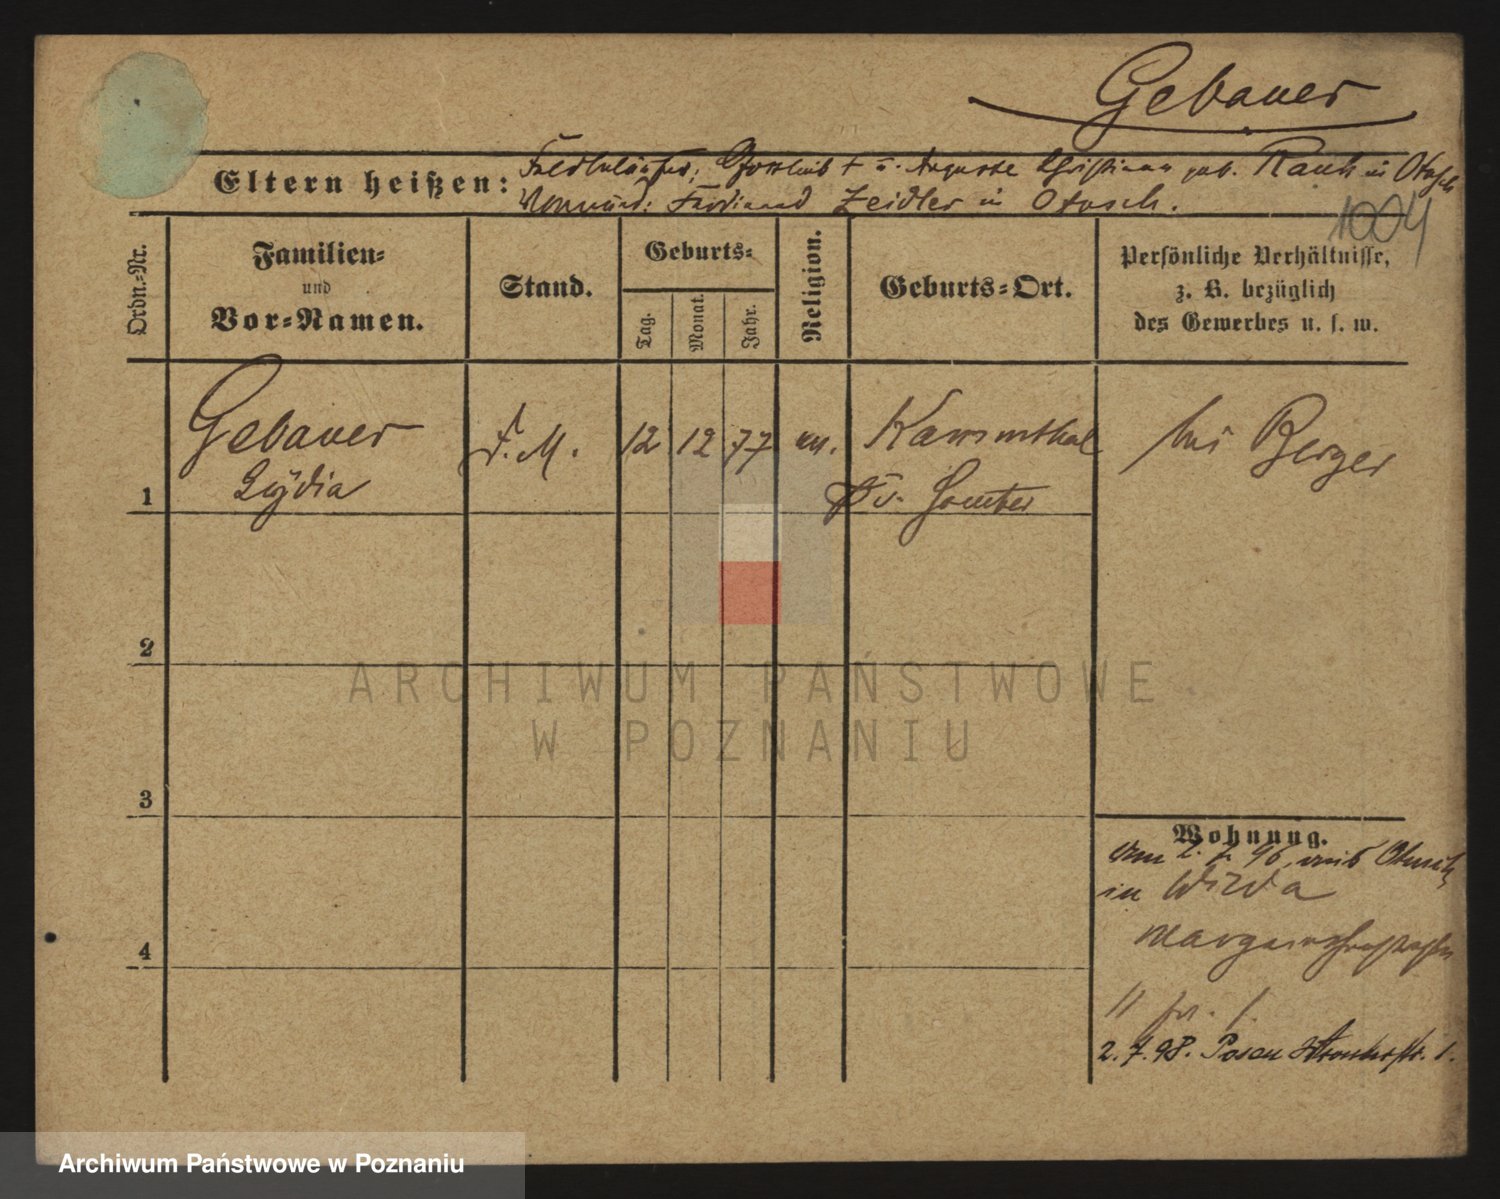 Gebauer
Eltern heißen: Gottlieb † u. Auguste Christiane geb. Rauh in Otusch
Vormund: Ferdinand Zeidler in Otusch.
1004
Ordn.-Nr.
Familien-
und
Vor-Namen.
Stand.
Geburts-
Tag.
Monat.
Jahr.
Religion.
Geburts-Ort.
Persönliche Verhältnisse,
z. B. bezüglich
des Gewerbes u. s. w.
1
Gebauer
Lydia
D. M.
12
12
77
ev.
Kammthal
Kr. Samter
bei Berger
2
3
4
Wohnung.
Am 2. 96 aus Otusch
in Wilda
2. 7. 98. Posen 1.
ARCHIWUM PAŃSTWOWE
W POZNANIU
Archiwum Państwowe w Poznaniu